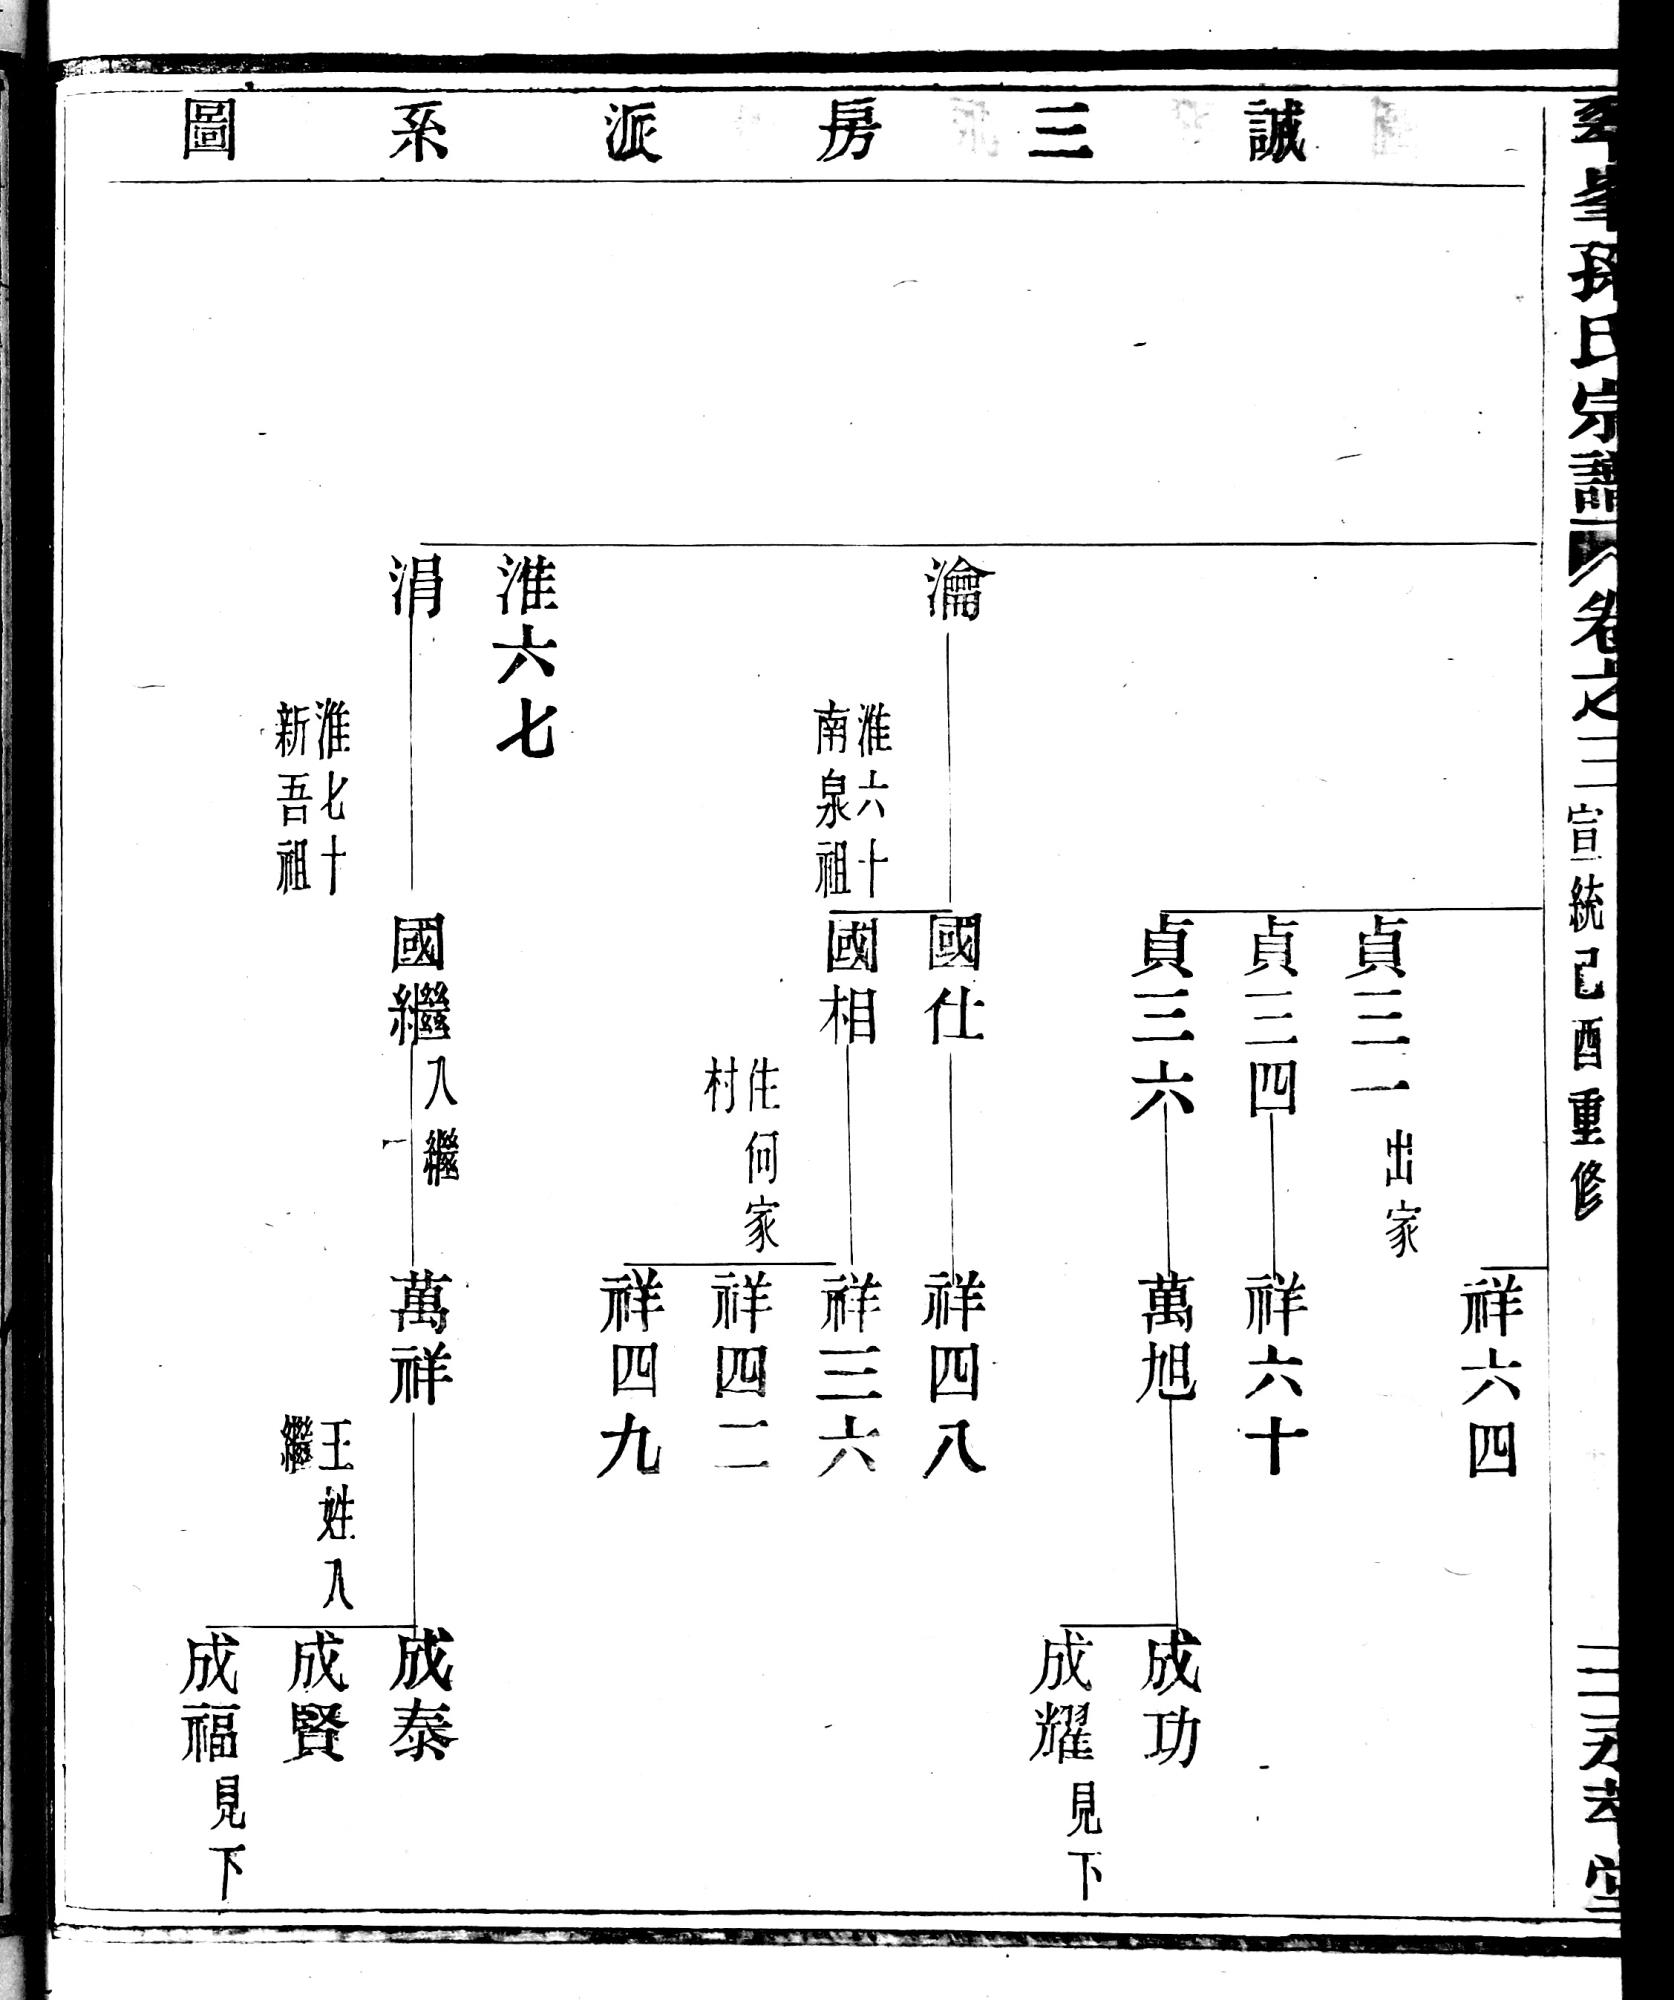 誠三房派系圖
氏宗譜 卷之三 宣統己酉重修
祥六四
貞三一 出家
貞三四
祥六十
貞三六
萬旭
成功
成耀 見下
瀹
淮六十
南泉祖
國仕
祥四八
國相
祥三六
住何家
村
祥四二
祥四九
淮六七
涓
淮七十
新吾祖
國繼 入繼
萬祥
王姓入
繼
成泰
成賢
成福 見下